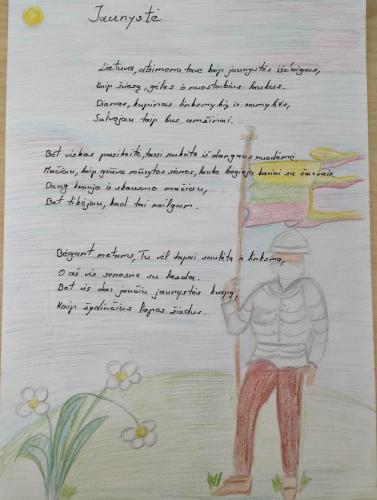 Jaunystė
Lietuva, atsimenu tave kaip jaunystės išdaigas,
Kaip šviesą, gėles ir nuostabius laukus.
Dienas, kupinas linksmybių ir ramybės,
Galvojau taip bus amžinai.
Bet viskas pasikeitė, tarsi nukrito iš dangaus nuodėmė
Mačiau, kaip griūva mūrytos sienos, lauke bėgioja kariai su šarvais.
Daug kraujo ir skausmo mačiau,
Bet tikėjau, kad tai neilgam.
Bėgant metams, Tu vėl tapai saulėta ir linksma,
O aš vis senesnė su lazda.
Bet vis dar jaučiu jaunystės kvapą,
Kaip žydinčius liepos žiedus.